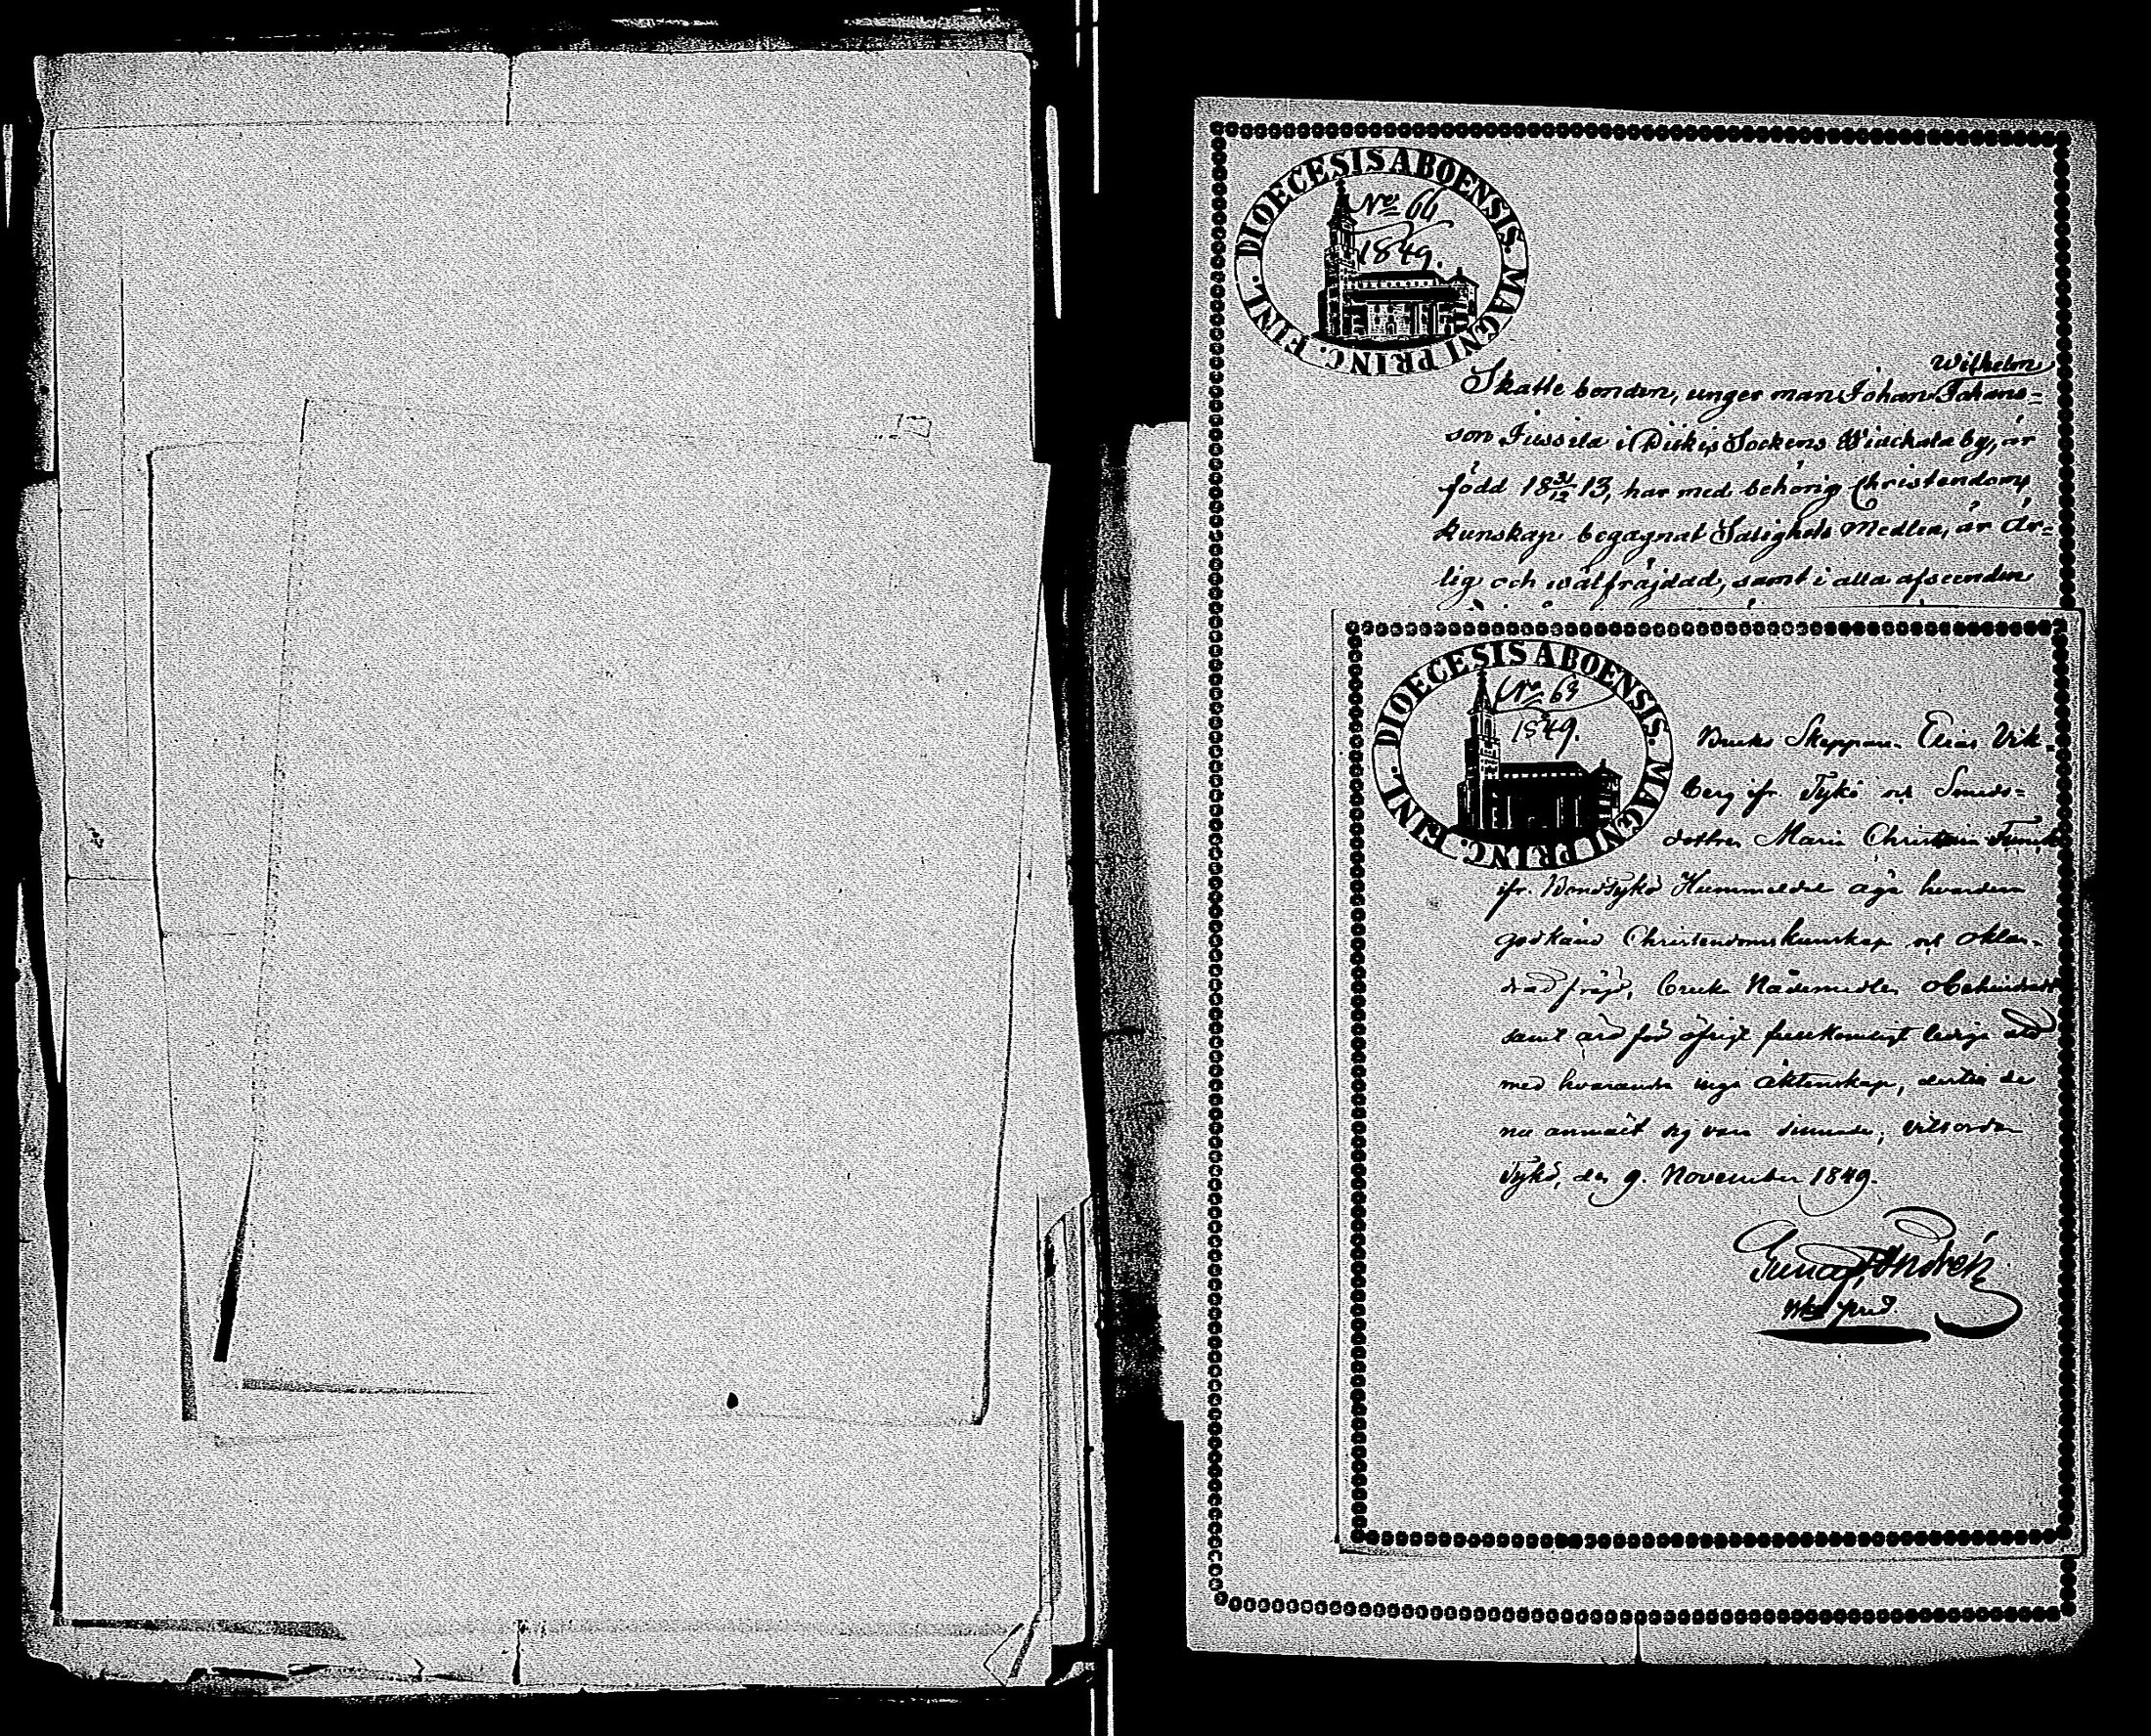 DIOECESIS ABOENSIS. MAGNI PRINC. FINL.
No 64
1849.
Wilhelm
Skatte bonden, unger man Johan Johans=
son Jussila i Pikis Sockens Wiuckala by, är
född 18 31/12 13, har med behörig Christendoms
kunskap begagnat Salighets Medlen, är är=
lig och wälfräjdad, samt i alla afseenden
DIOECESIS ABOENSIS. MAGNI PRINC. FINL.
No 63
1849.
Bruks Skeppare Elias Vik=
berg ifr. Tykö och Smeds=
dottren Maria Christina
ifr. Tykö Hummeldal äga hvardera
godkänd Christendomskunskap och oklan=
drad fräjd, bruka Nådemedlen obehindradt
samt äro för öfrigt fullkomligt lediga att
med hvarandra ingå äktenskap, dertill de
nu anmält sig vara sinnade; vitsordar
Tykö, den 9. November 1849.
Gustaf Andrén